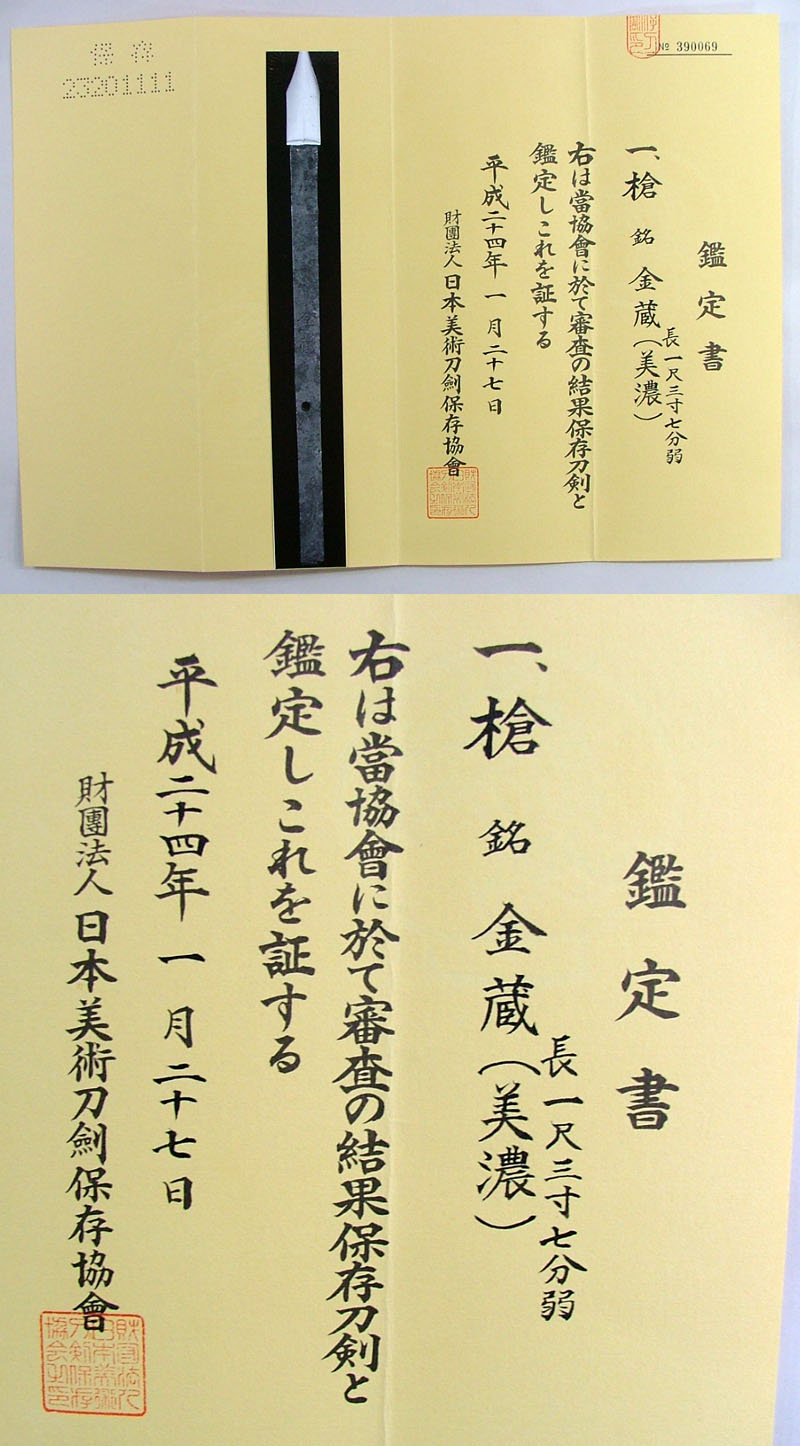 保存
23201111
№ 390069
鑑定書
長一尺三寸七分弱
一、槍 銘 金蔵(美濃)
右は當協會に於て審査の結果保存刀剣と
鑑定しこれを証する
平成二十四年一月二十七日
財團法人日本美術刀劍保存協會
鑑定書
長一尺三寸七分弱
一、槍 銘 金蔵(美濃)
右は當協會に於て審査の結果保存刀剣と
鑑定しこれを証する
平成二十四年一月二十七日
財團法人日本美術刀劍保存協會